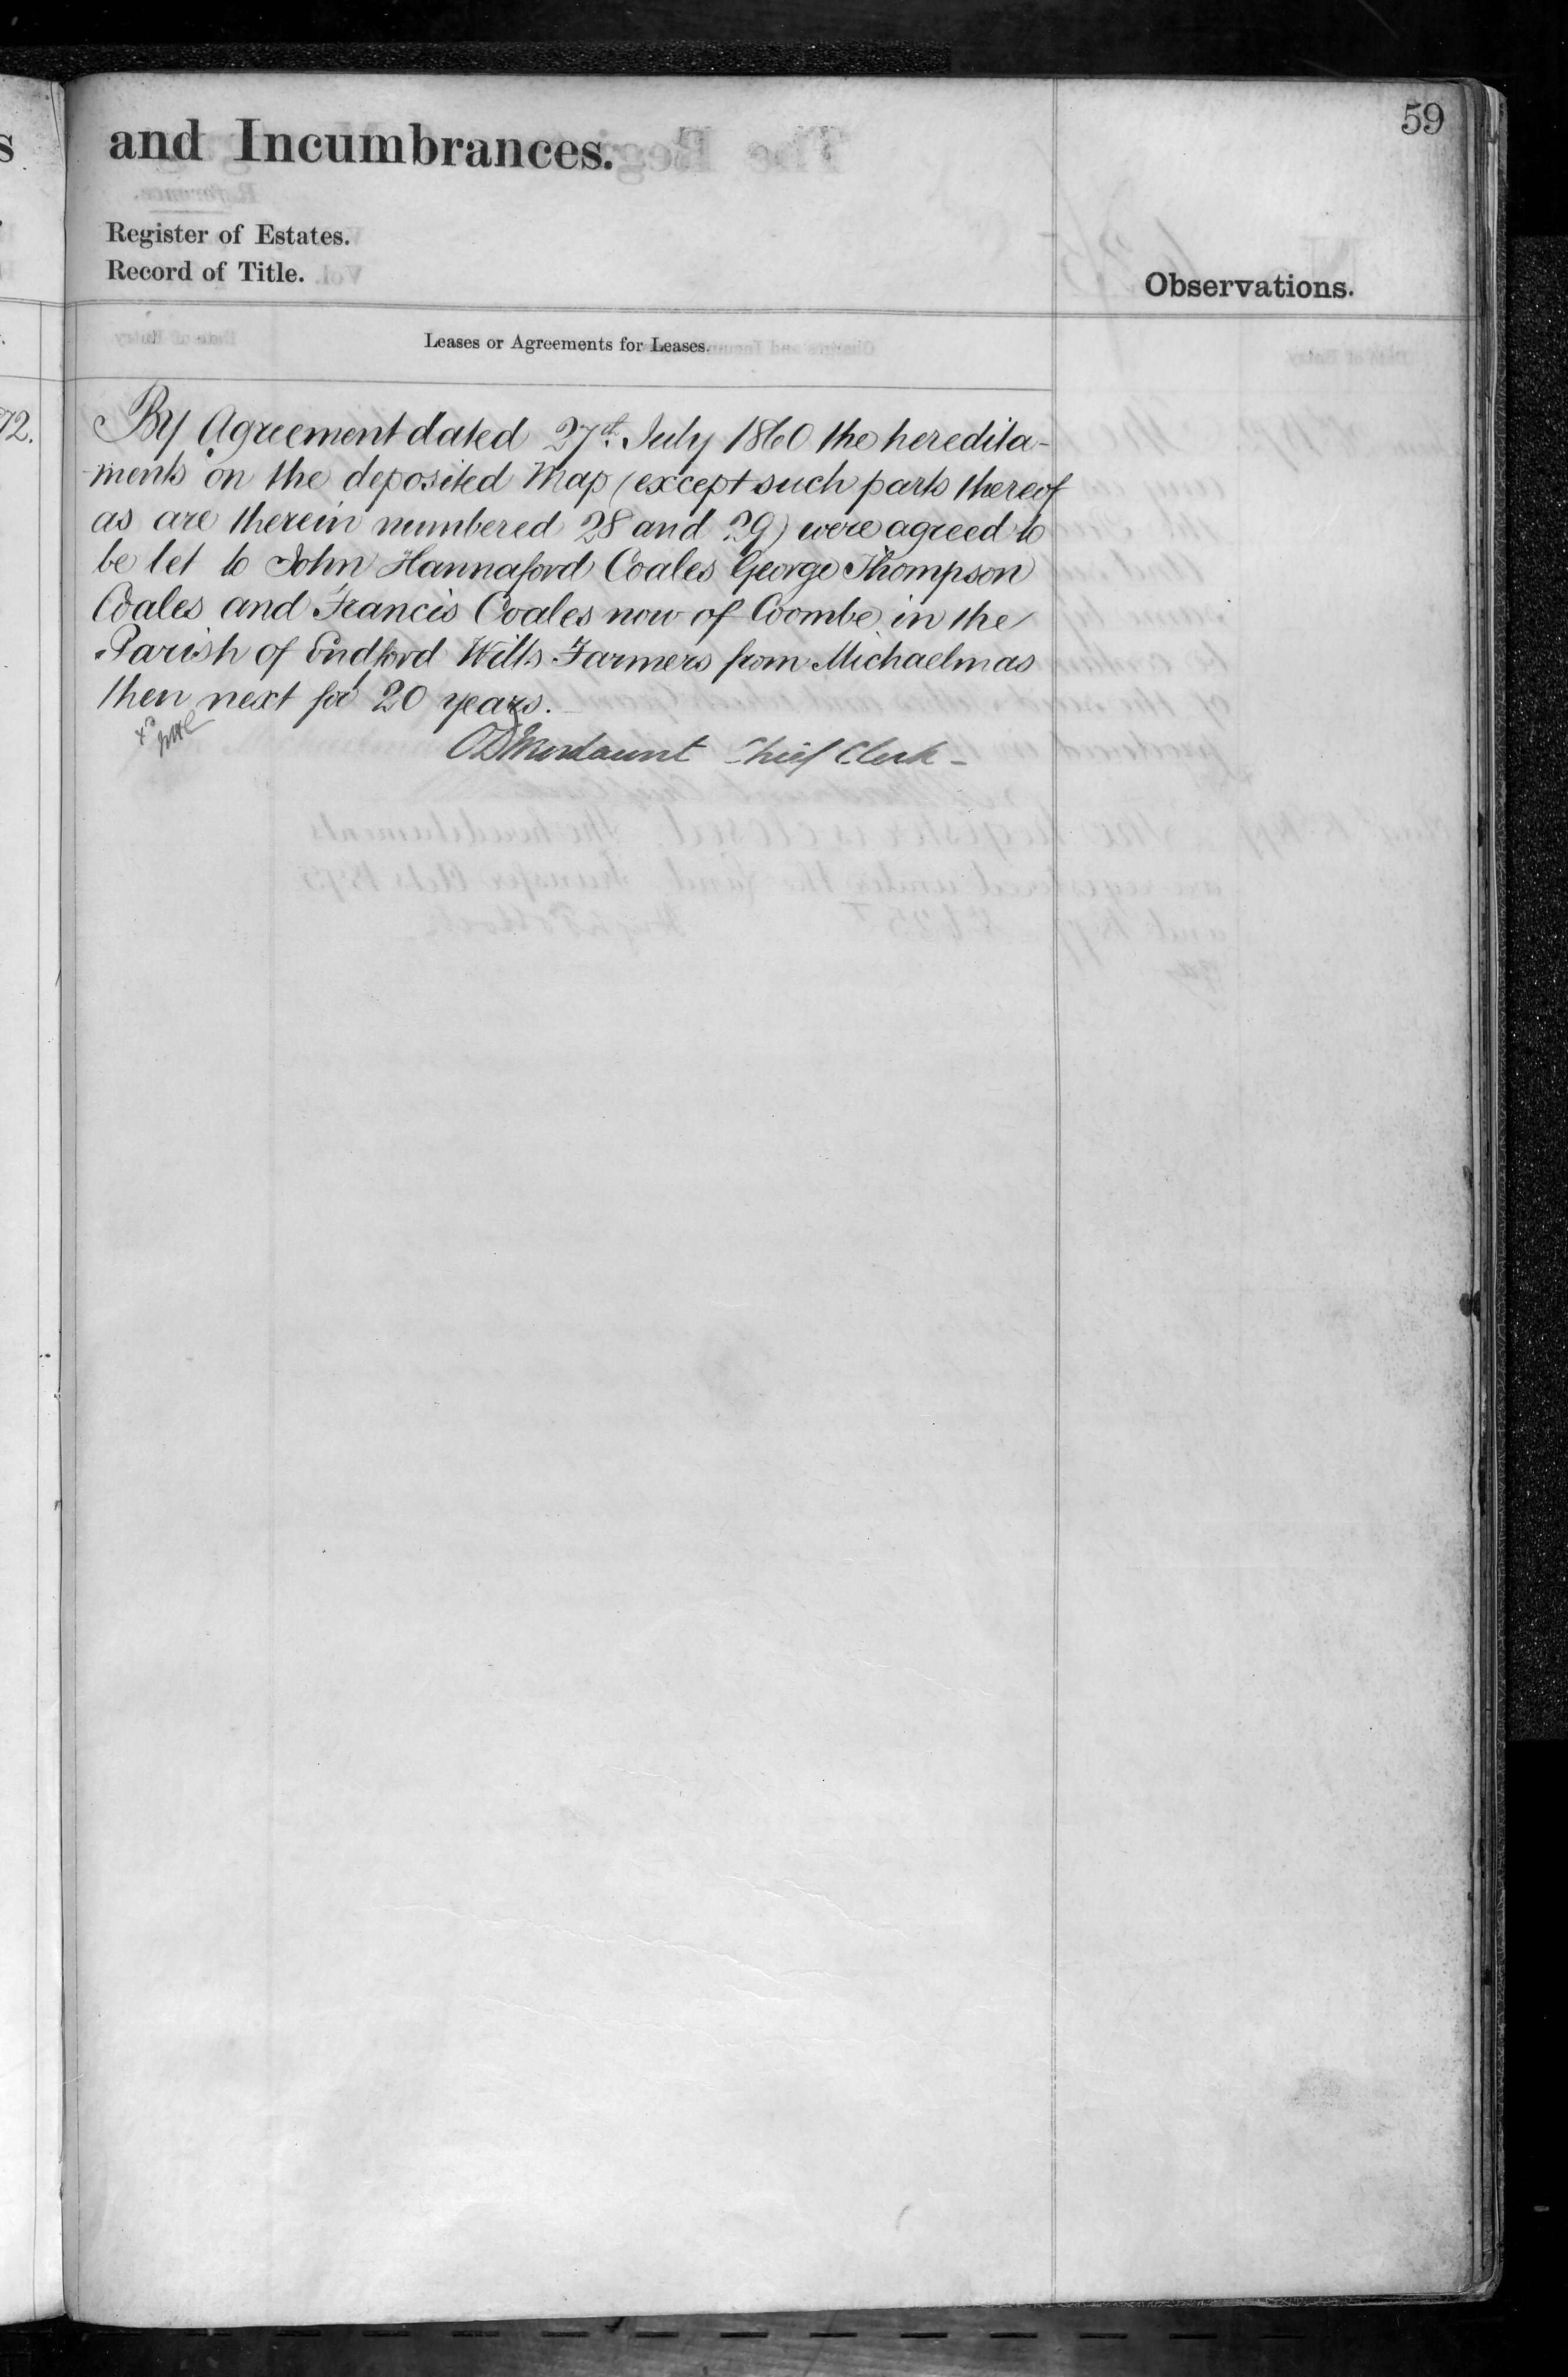 59
and Incumbrances.
Register of Estates.
Record of Title.
Observations.
Leases or Agreements for Leases.
72.
By Agreement dated 27th July 1860 the heredita-
-ments on the deposited Map (except such parts thereof
as are therein numbered 28 and 29) were agreed to
be let to John Hannaford Coales George Thompson
Coales and Francis Coales now of Coombe in the
Parish of Endford Wilts Farmers from Michaelmas
then next for 20 years.
Mordaunt Chief Clerk -